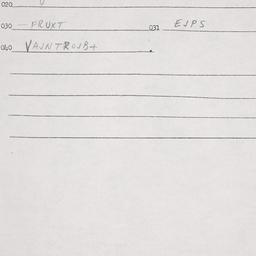 020
030 — FRUKT 031 EJPS
060 VAJNTROJB+